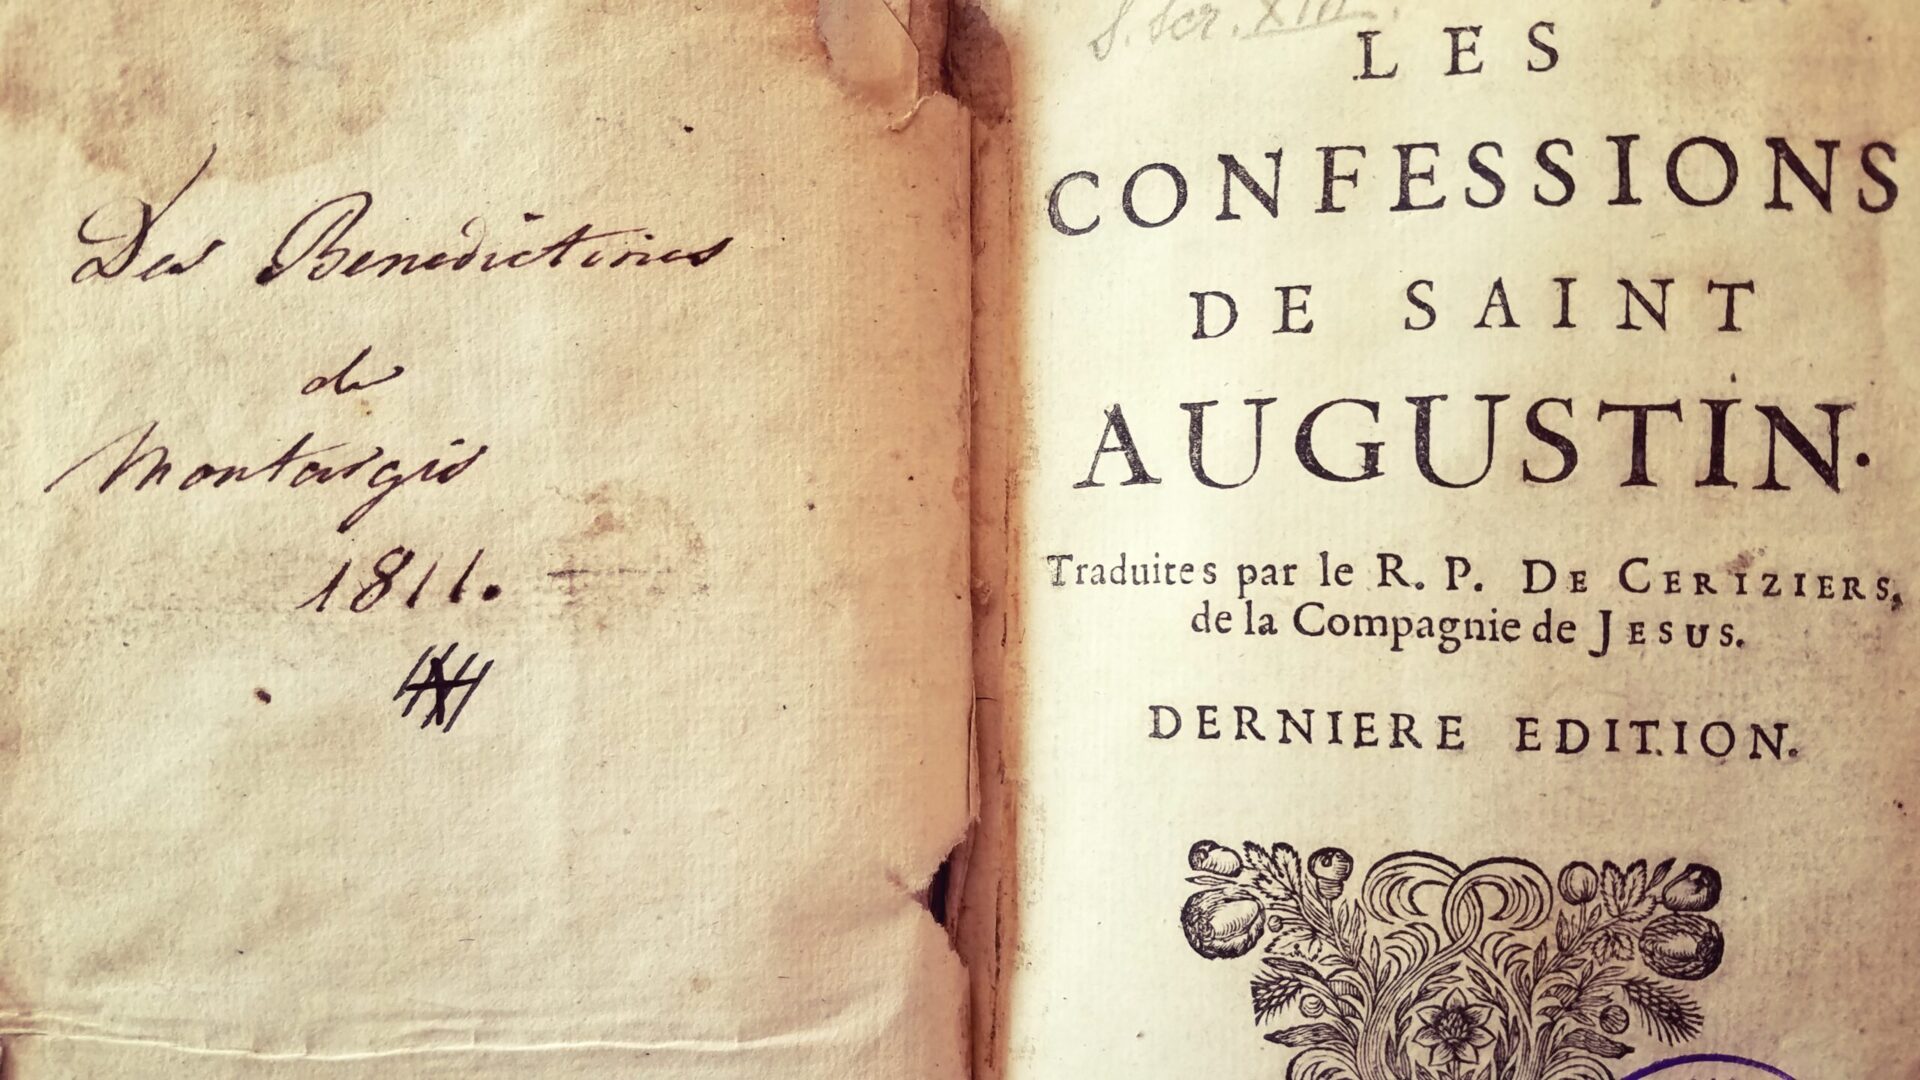 Des Benedictines
de
Montargis
1811.
S. Scr. XIII.
LES
CONFESSIONS
DE SAINT
AUGUSTIN.
Traduites par le R. P. DE CERIZIERS,
de la Compagnie de JESUS.
DERNIERE EDITION.